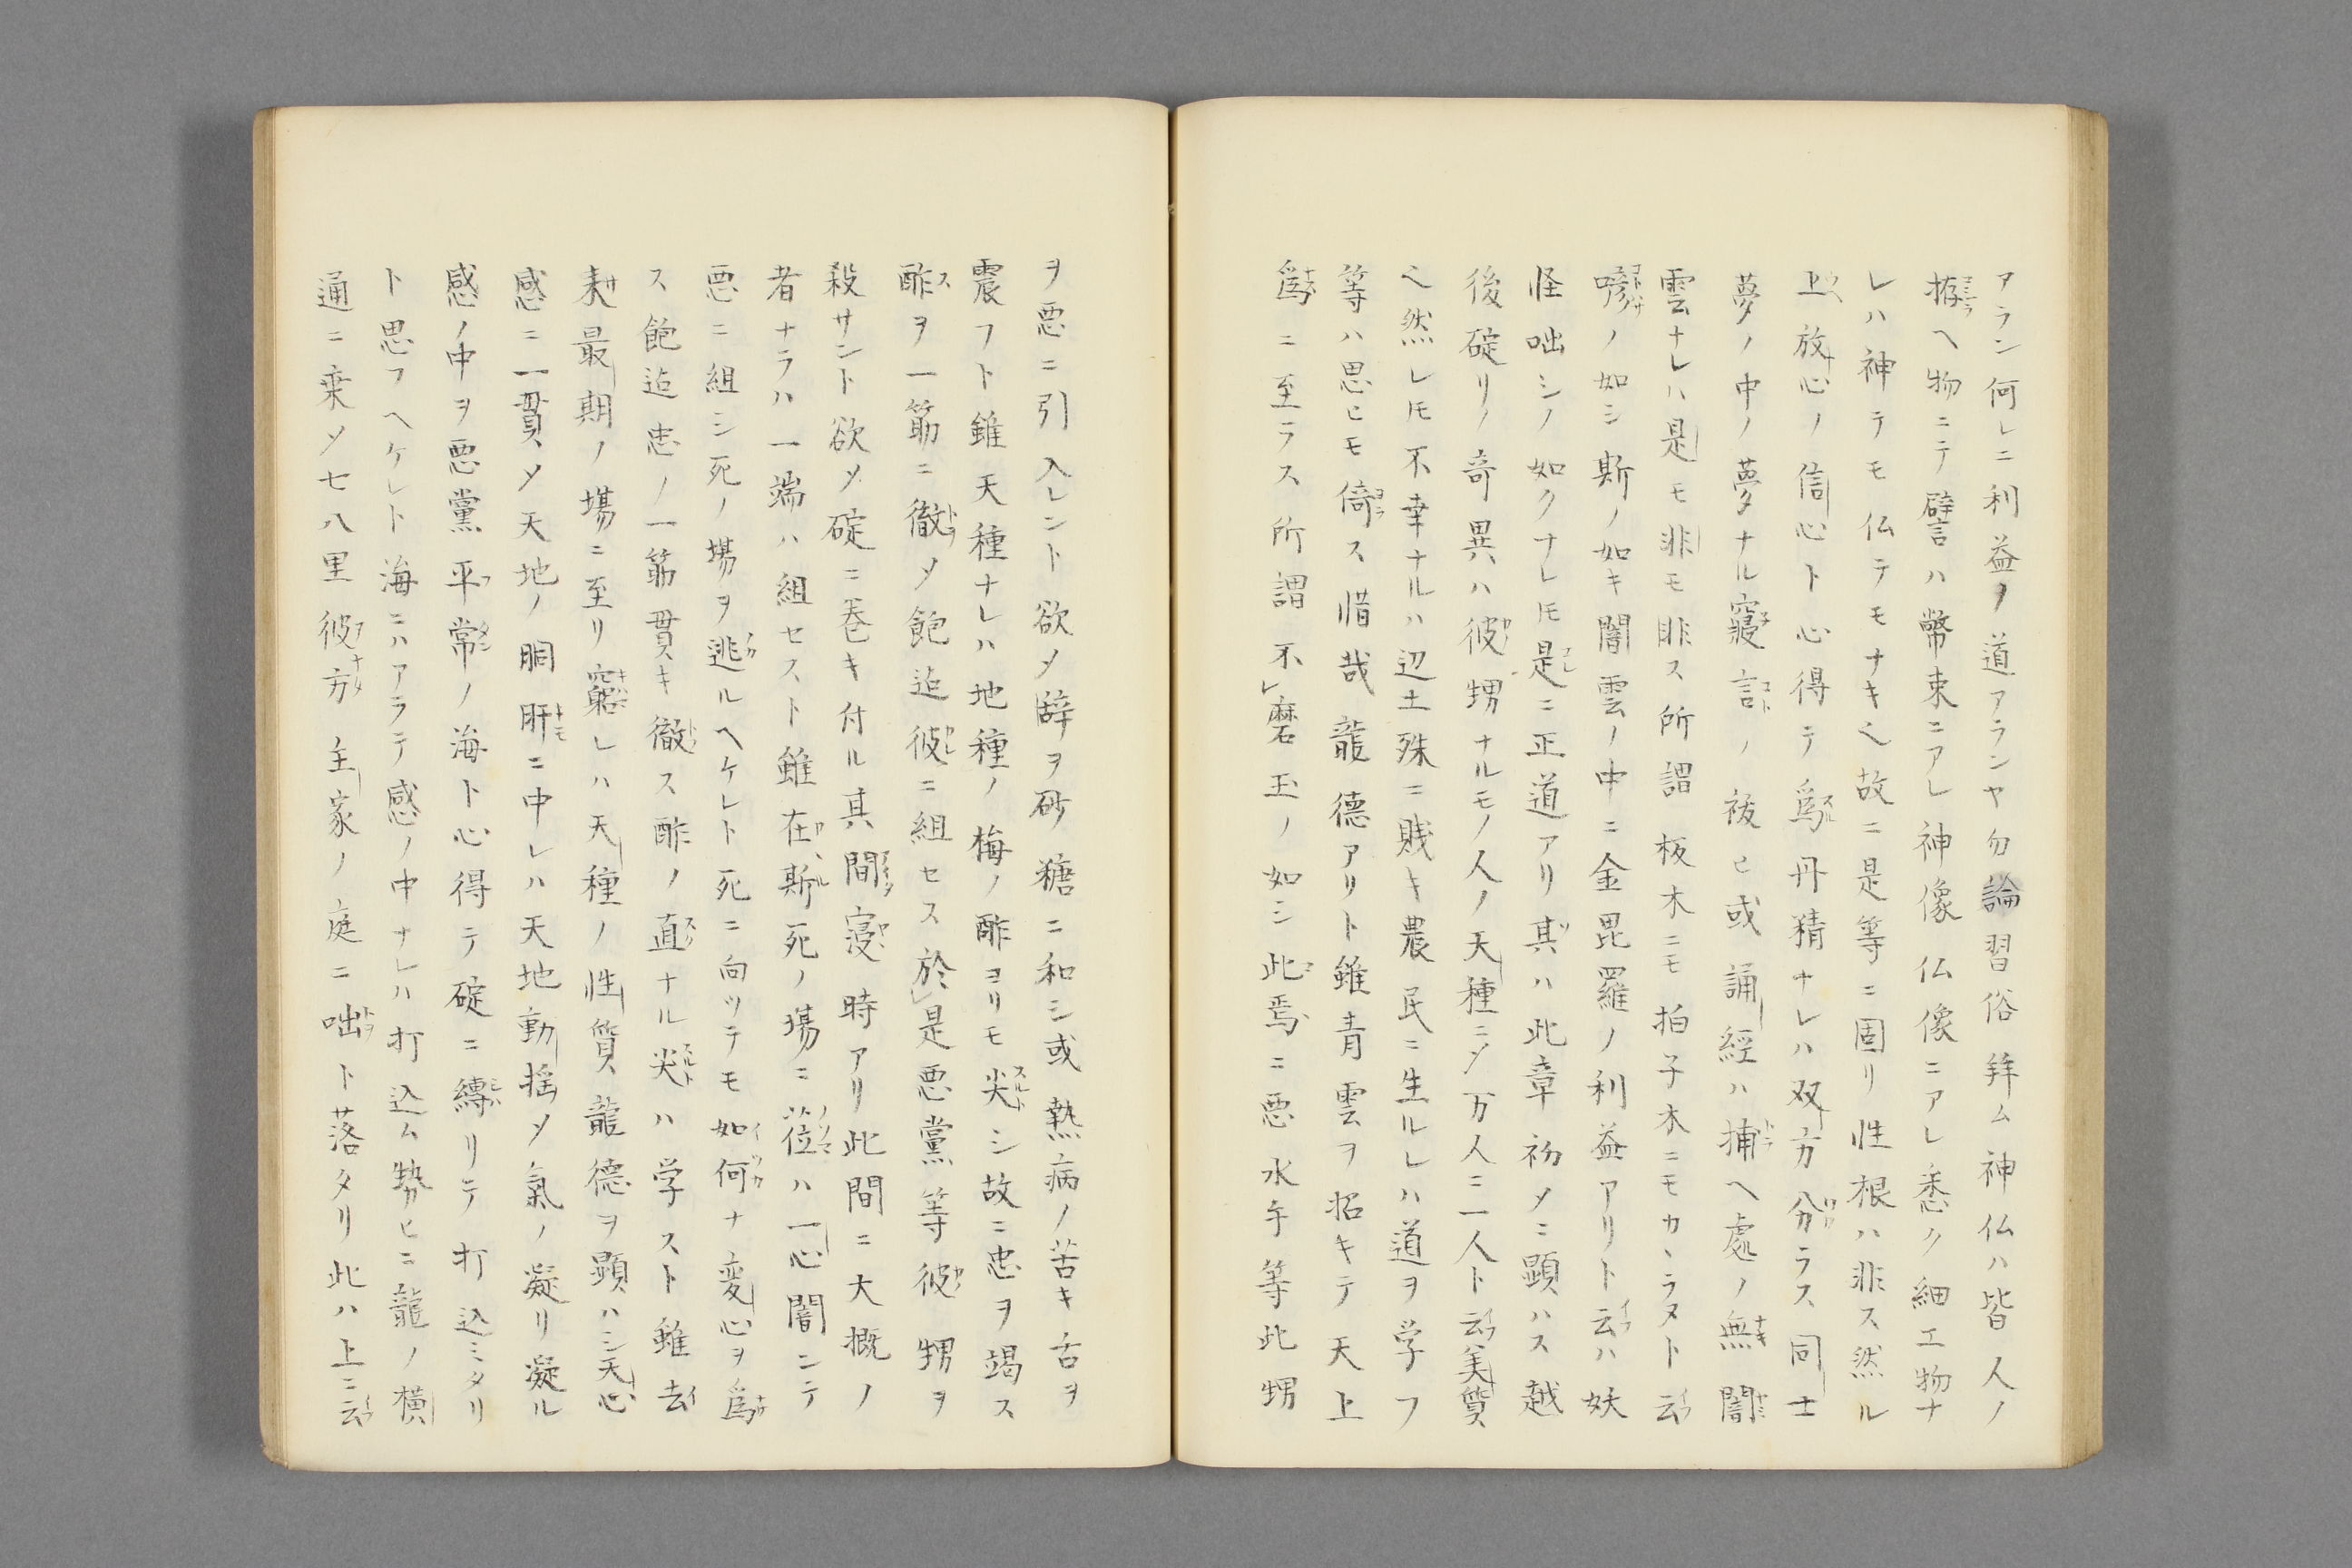 アラン何レニ利益ノ道アランヤ勿論習俗拜ム神仏ハ皆人ノ
拵ヘ物ニテ譬ハ幣束ニアレ神像仏像ニアレ悉ク細工物ナ
レハ神テモ仏テモナキ也故ニ是等ニ固リ性根ハ非ス然ル
上放心ノ信心ト心得テ爲丹精ナレハ双方分ラス同士
夢ノ中ノ夢タナル寢言ノ祓ヒ或誦經ハ捕ヘ處ノ無闇
雲ナレハ是モ非モ非ス所謂板木ニモ拍子木ニモカヽラヌト云
喩ノ如シ斯ノ如キ闇雲ノ中ニ金毘羅ノ利益アリト云ハ妖
怪咄シノ如クナレ𪜈是ニ正道アリ其ハ此章初メニ顕ハス越
後碇リノ奇異ハ彼甥ナルモノ人ノ天種ニノ万人ニ一人ト云美質
也然レ𪜈不幸ナルハ辺土殊ニ賎キ農民ニ生ルレハ道ヲ学フ
等ハ思ヒモ倚ス惜哉龍德アリト雖青雲ヲ招キテ天上
爲ニ至ラス所謂不磨玉ノ如シ此焉ニ悪水手等此甥
ヲ悪ニ引入レント欲メ辞ヲ砂糖ニ和シ或熱病ノ苦キ舌ヲ
震フト雖天種ナレハ地種ノ梅ノ酢ヨリモ尖シ故ニ忠ヲ竭ス
酢ヲ一筋ニ徹メ飽迄彼ニ組セス於是悪黨等彼甥ヲ
殺サント欲メ碇ニ巻キ付ル其間寝時アリ此間ニ大概ノ
者ナラハ一端ハ組セスト雖在斯死ノ場ニ莅ハ一心闇ンテ
悪ニ組シ死ノ場ヲ逃ルヘケレト死ニ向ツテモ如何ナ変心ヲ爲
ス飽迄忠ノ一筋貫キ徹ス酢ノ直ナル尖ハ学スト雖去
耒最期ノ場ニ至リ窮レハ天種ノ性質龍德ヲ顕ハシ天心
感ニ一貫メ天地ノ胴肝ニ中レハ天地動揺メ氣ノ凝リ凝ル
感ノ中ヲ悪黨平常ノ海ト心得テ碇ニ縛リテ打込ミタリ
ト思フヘケレト海ニハアラテ感ノ中ナレハ打込ム勢ヒニ龍ノ横
通ニ乗メ七八里彼方主家ノ庭ニ咄ト落タリ此ハ上ニ云